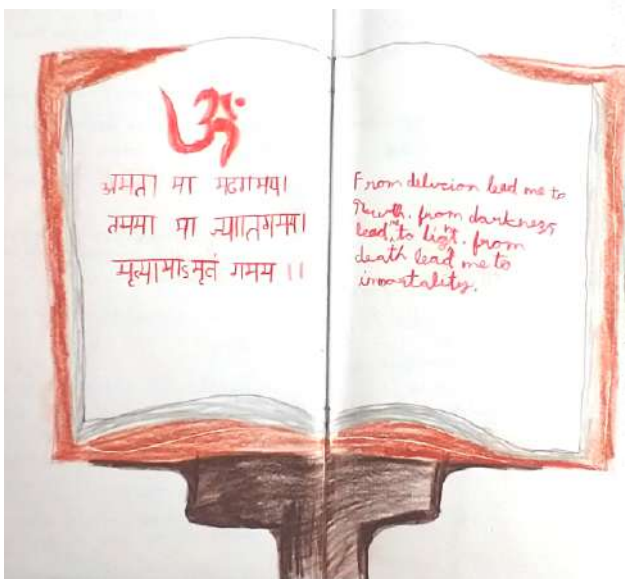 ॐ
अमता मा मदगमय।
तममा मा ज्यातगमय।
मृत्यामाऽमृतं गमय ।।
From delucion lead me to
truth. from darkness
lead me to light. from
death lead me to
immortality.